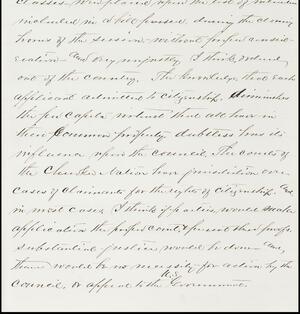 classes were placed upon the list of
included in a bill passed, during the closing
hours of the session, without proper consid-
eration and very unjustly, I think, ruled
out of the country. The knowledge that each
applicant admitted to citizenship diminishes
the per capita interest that all have in
their common property doubtless has its
influence upon the council. The courts of
the Cherokee Nation have jurisdiction over
cases of claimants for the rights of citizenship and
in most cases, I think if parties would make
application to the proper court, & present their proofs
substantial justice would be done and
there would be no necessity for action by the
council, or appeal to the U.S. Government.